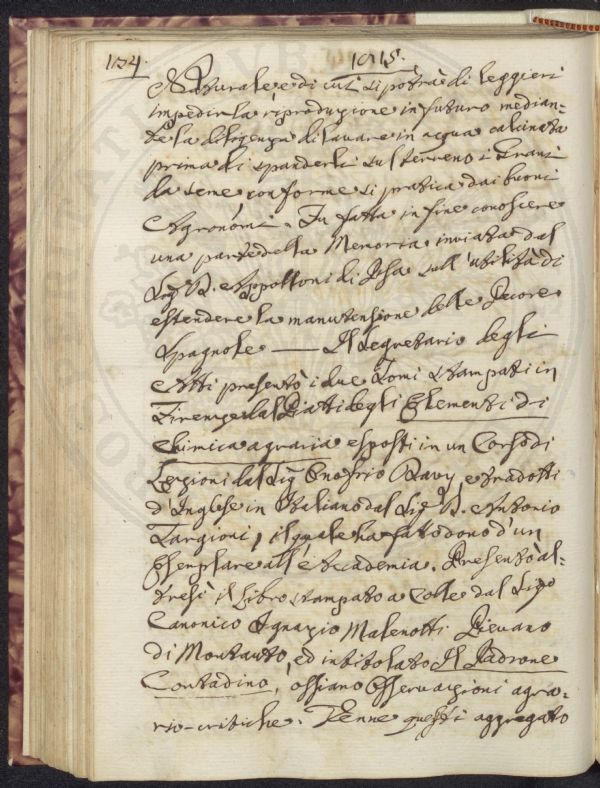 134.
1815.
Naturale e di cui si potrà di leggieri
impedir la riproduzione in futuro median-
te la diligenza di lavare in acqua calcinata
prima di spanderli sul terreno i Grani
da seme conforme si pratica dai buoni
Agronomi. Fu fatta in fine conoscere
una parte della Memoria inviata dal
Sig. D. Appolloni di Pisa sull'utilità di
estendere la manutensione delle Pecore
Spagnole — Il Segretario degli
Atti presentò i due Tomi stampati in
Firenze dal Piatti degli Elementi di
Chimica agraria esposti in un Corso di
Lezioni dal Sig. Onofrio Davy, e tradotti
d'Inglese in Italiano dal Sig. D. Antonio
Targioni, il quale ha fatto dono d'un
Esemplare all'Accademia. Presentò al-
tresì il Libro stampato a Colle dal Sigr.
Canonico Ignazio Malenotti Pievano
di Montauto, ed intitolato Il Padrone
Contadino, ossiano Osservazioni agra-
rio-critiche. Venne questi aggregato